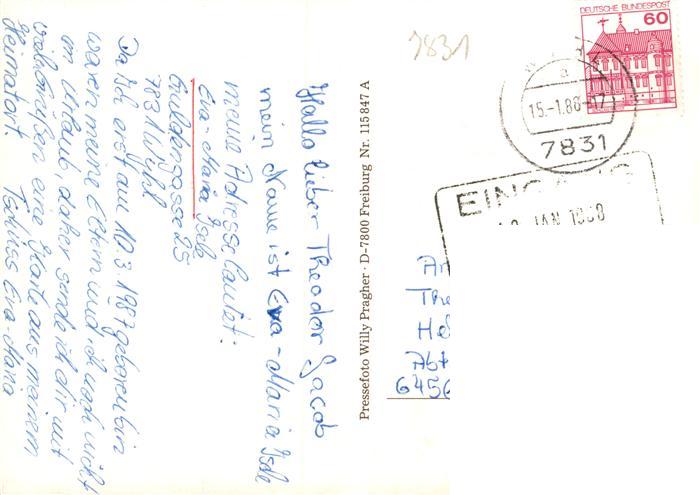 Hallo lieber Theodor Jacob
mein Name ist Eva-Maria Isele
meine Adresse lautet:
Eva-Maria Isele
Guldengasse 25
7831 Wyhl
Da ich erst am 10.3.1987 geboren bin
waren meine Eltern und ich noch nicht
im Urlaub, daher sende ich dir mit
vielen Grüßen eine Karte aus meinem
Heimatort. Tschüss Eva-Maria
Pressefoto Willy Pragher · D-7800 Freiburg Nr. 115 847 A
7831
DEUTSCHE BUNDESPOST
60
a
15.-1.88-17
7831
EINGANG
JAN 1988
The
Abt
6456